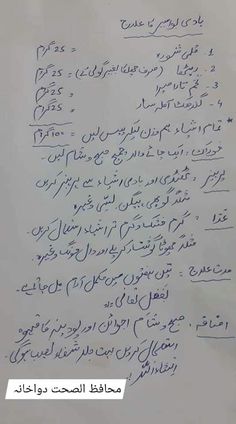 بادی بواسیر کا علاج
1. قلمی شورہ = 25 گرام
2. ریٹھا (صرف چھلکا بغیر گٹھلی کے) = 25 گرام
3. تخم تارا میرا = 25 گرام
4. گندھک آملہ سار = 25 گرام
100 گرام
* تمام اشیاء ہم وزن لیکر پیس لیں
خوراک: ایک چائے والا چمچ صبح و شام لیں۔
پرہیز: ٹھنڈی اور بادی اشیاء سے پرہیز کریں
مثلاً گوبھی، بینگن، لسی وغیرہ
غذا: گرم خشک و گرم تر اشیاء استعمال کریں۔
مثلاً چھوٹا گوشت کریلے اور دال مونگ وغیرہ
مدت علاج: تین ہفتوں میں مکمل آرام مل جاتا ہے۔
بفضل تعالیٰ
اضافہ: صبح و شام اجوائن اور پودینہ کا قہوہ
استعمال کریں بہت جلد شفاء نصیب ہوگی۔
انشاءاللہ
محافظ الصحت دواخانہ